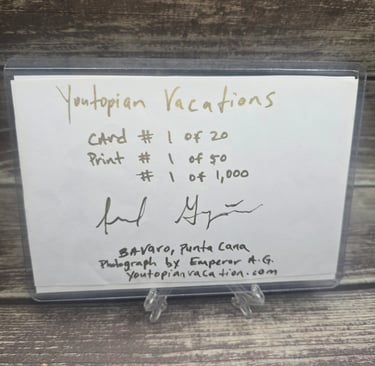 Youtopian Vacations
Card # 1 of 20
Print # 1 of 50
# 1 of 1,000
Bavaro, Punta Cana
Photograph by Emperor A.G.
youtopianvacation.com